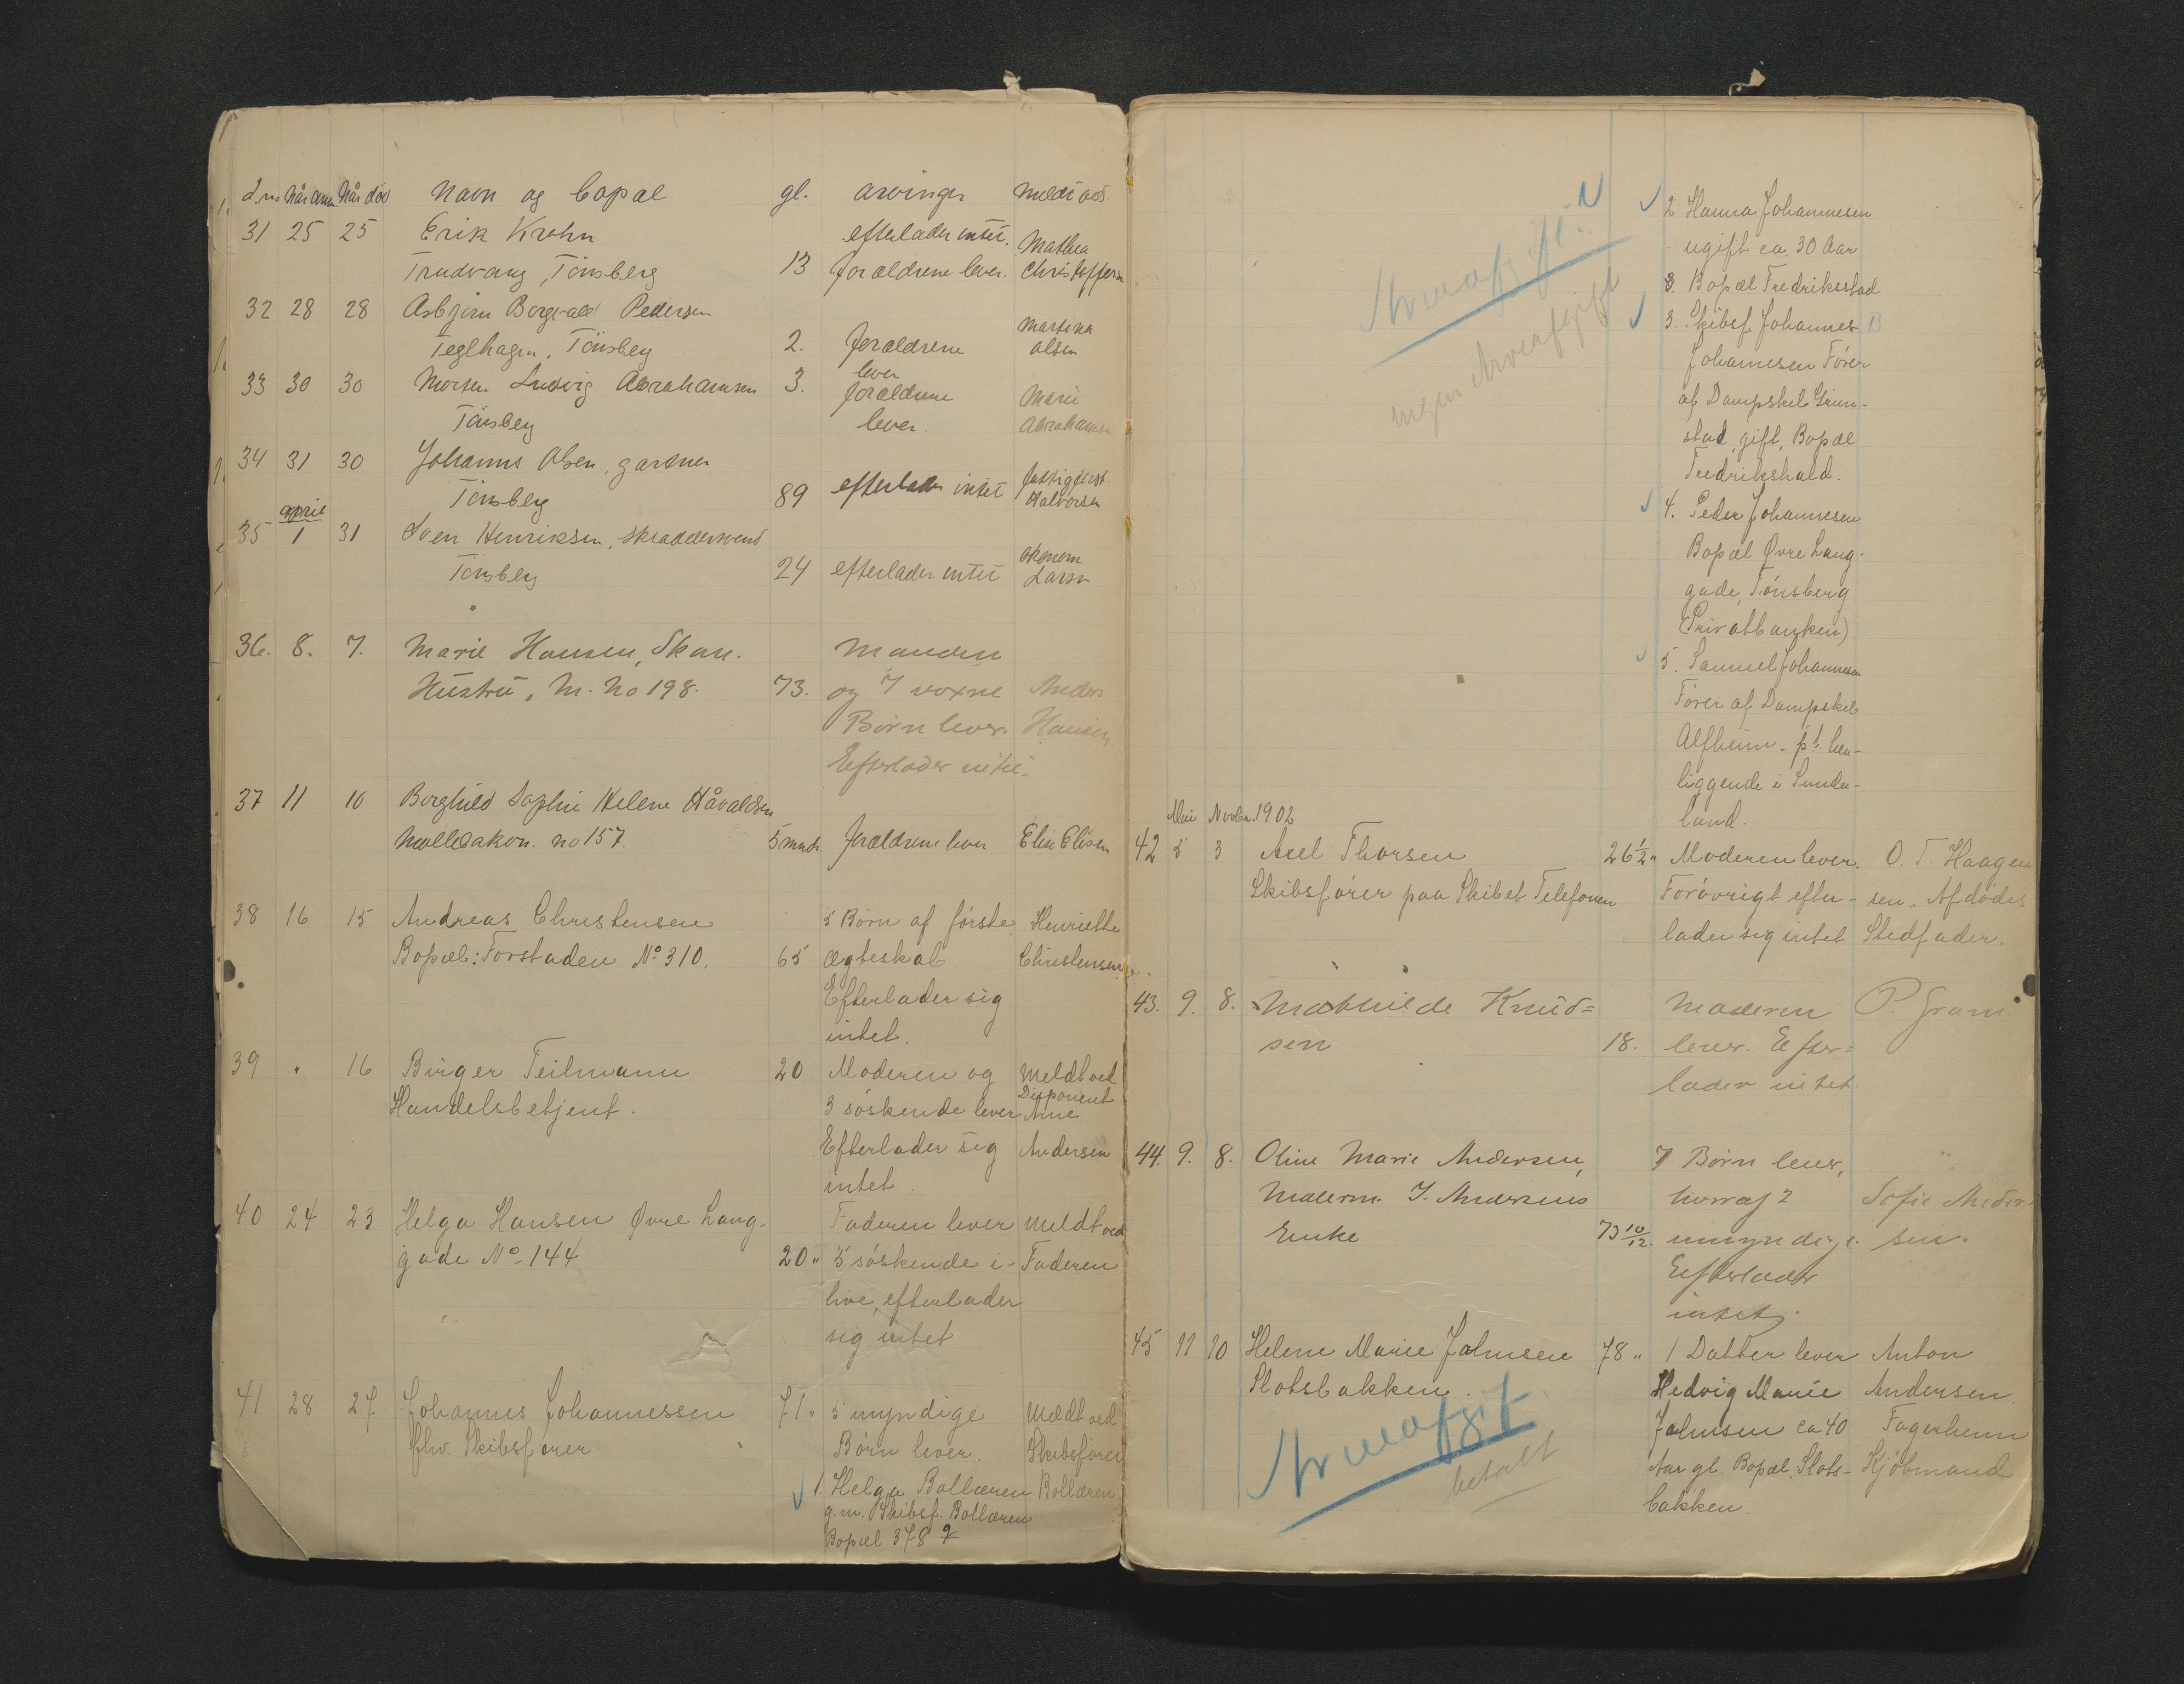 Når anm. Når död Navn og bopæl gl. arvinger meldt ved.
31 25 25 Erik Krohn efterlader intet. Mathea
Trudvang, Tönsberg 13 forældrene lever. Christoffersen
32 28 28 Asbjörn Borgvald Pedersen Martina
Teglhagen, Tönsberg 2. forældrene olsen
lever
33 30 30 Morten Ludvig Abrahamsen 3. forældrene Marie
Tönsberg lever. Abrahamsen
34 31 30 Johannes Olsen, gardner
Tönsberg 89 efterlader intet fattigbest. Halvorsen
april
35 1 31 Sven Henriksen, skräddersvend
Tönsberg 24 efterlader intet økonom Larsen
36. 8. 7. Marie Hansen, Skom. Manden
Hustru, M. No 198. 73. og 7 voxne Anders
Börn lever. Hansen
Efterlader intet.
37 11 10 Borghild Sophie Helene Håvaldsen
Mollebakken. no 157. 5 mndr. forældrene lever Elise Elisen
38 16 15 Andreas Christensen 5 Børn af förste Henriette
Bopæl: Forstaden No 310. 65 Ægteskab Christensen
Efterlader sig
intet.
39 " 16 Birger Teilmann 20 Moderen og Meldt ved
Disponent
Handelsbetjent. 3 söskende lever Arne
Efterlader sig Andersen
intet.
40 24 23 Helga Hansen Øvre Lang- Faderen lever Meldt ved
gade No 144 20 " 5 söskende i- Faderen
live, efterlader
sig intet
41 28 27 Johannes Johannessen 71 " 5 myndige Meldt ved
fhv. Skibsförer Börn lever. Skibsförer
1. Helga Bollæren Bollæren
g. m. Skibsf. Bollæren
Bopæl 378
Arveafgift.
ingen Arveafgift
2 Hanna Johannesen
ugift ca. 30 Aar
3. Bopæl Fredriksstad
3. Skibsf. Johannes
Johannesen Förer
af Dampskib Grim-
stad, gift, Bopæl
Fredrikshald.
4. Peder Johannesen
Bopæl Øvre Lang-
gade, Tönsberg
(Privatbanken)
5. Samuel Johannesen
Förer af Dampskib
Alfheim - p.t. hen-
liggende i Sunder-
land.
Mai Novbr. 1902
42 5 3 Axel Thorsen 26 1/2 " Moderen lever. O. T. Haagen
Skibsförer paa Skibet Telefonen Forövrigt efter- sen. Afdödes
lader sig intet Stedfader.
43. 9. 8. Mathilde Knud= Moderen P. Gram.
sen 18. lever. Efter=
lader intet.
44. 9. 8. Oline Marie Andersen, 7 Børn lever,
Malerm. J. Andersens hvoraf 2 Sofie Ander=
Enke 73 10/12. umyndige. sen.
Efterlader
intet.
45 11 10 Helene Marie Jahnsen 78 " 1 Datter lever Anton
Slotsbakken. Hedvig Marie Andersen
Jahnsen ca 40 Fagerheim
Aar gl. Bopæl. Slots- Kjöbmand
bakken.
Arveafgift.
betalt